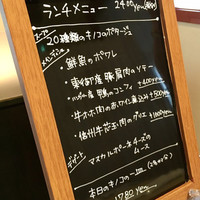 ランチメニュー 2400yen(税込)
スープ
20種類のキノコのポタージュ
メインディッシュ
・鮮魚のポワレ
・豚肩肉のソテー
・鴨のコンフィ +400yen
・牛ホホ肉の赤ワイン煮込み +500yen
・信州牛芯玉肉のグリエ +1000yen
デザート
マスカルポーネチーズの
ムース
本日のキノコの一皿
1780yen